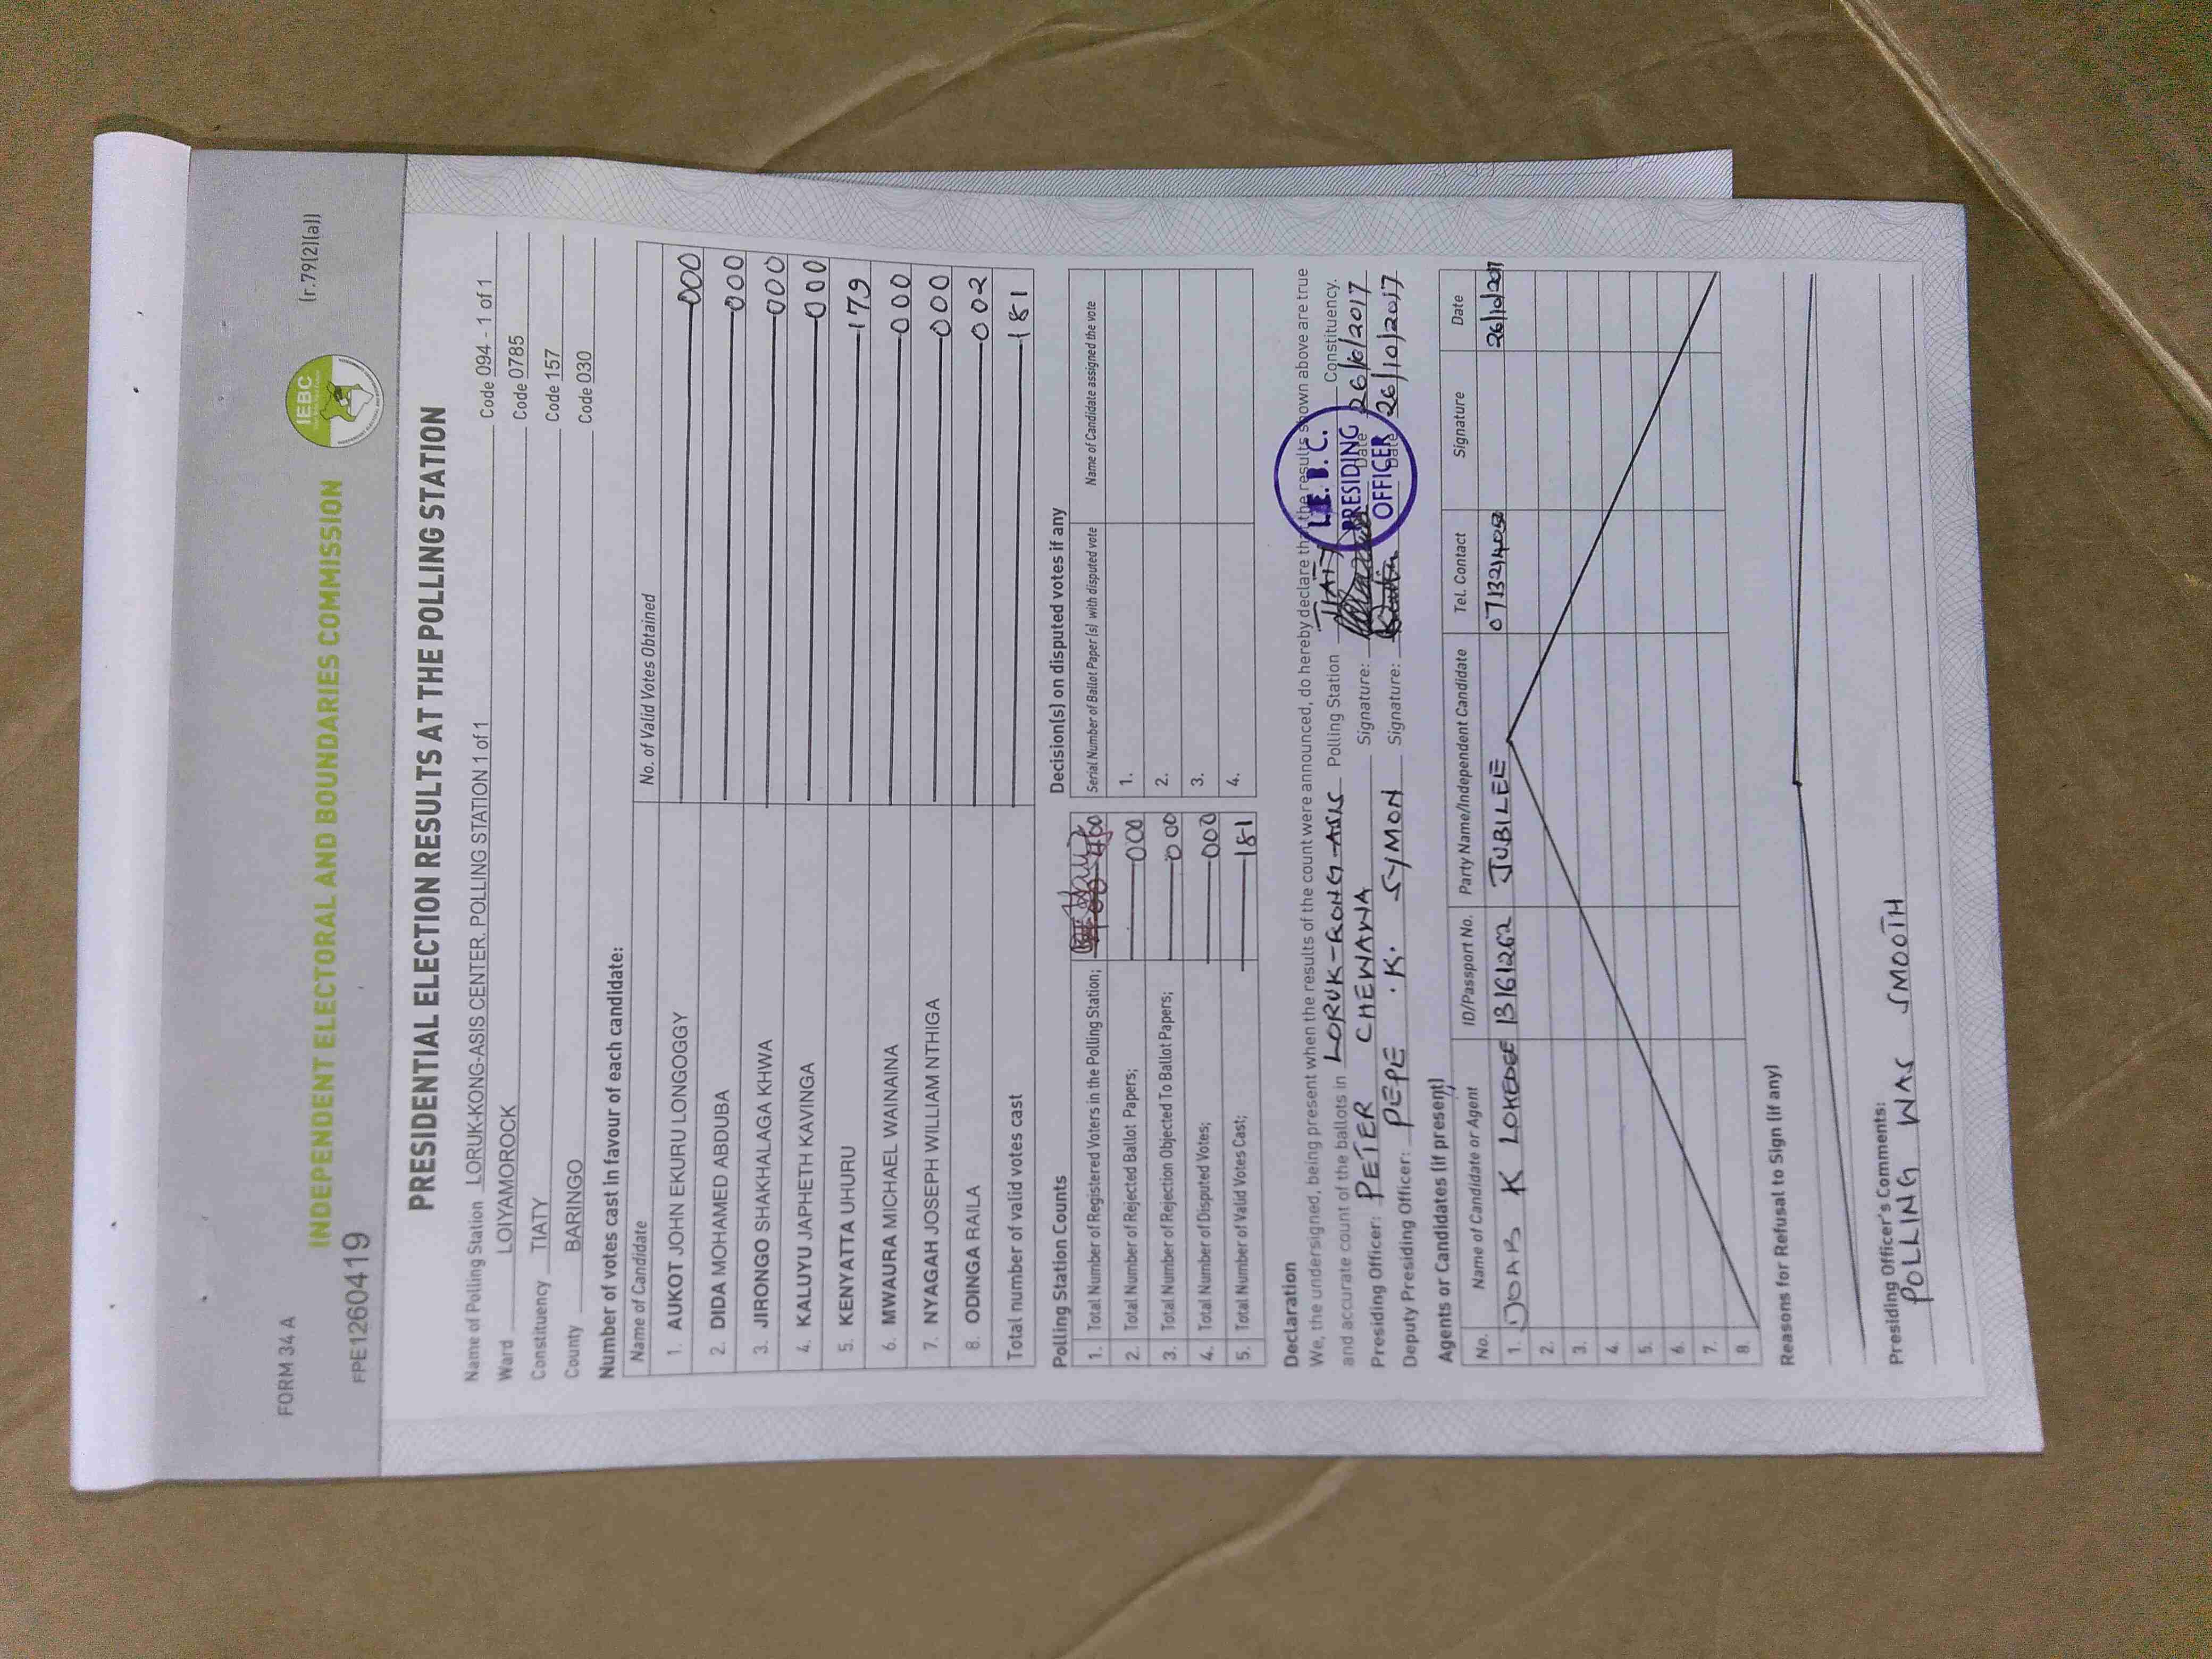 FORM 34 A
(r.79(2)(a))
IEBC
INDEPENDENT ELECTORAL AND BOUNDARIES COMMISSION
FPE1260419
PRESIDENTIAL ELECTION RESULTS AT THE POLLING STATION
Name of Polling Station LORUK-KONG-ASIS CENTER. POLLING STATION 1 of 1 Code 094 - 1 of 1
Ward LOIYAMOROCK Code 0785
Constituency TIATY Code 157
County BARINGO Code 030
Number of votes cast in favour of each candidate:
Name of Candidate No. of Valid Votes Obtained
1. AUKOT JOHN EKURU LONGOGGY 000
2. DIDA MOHAMED ABDUBA 000
3. JIRONGO SHAKHALAGA KHWA 000
4. KALUYU JAPHETH KAVINGA 000
5. KENYATTA UHURU 179
6. MWAURA MICHAEL WAINAINA 000
7. NYAGAH JOSEPH WILLIAM NTHIGA 000
8. ODINGA RAILA 002
Total number of valid votes cast 181
Polling Station Counts
1. Total Number of Registered Voters in the Polling Station;
2. Total Number of Rejected Ballot Papers; 000
3. Total Number of Rejection Objected To Ballot Papers; 000
4. Total Number of Disputed Votes; 000
5. Total Number of Valid Votes Cast; 181
Decision(s) on disputed votes if any
Serial Number of Ballot Paper(s) with disputed vote Name of Candidate assigned the vote
1.
2.
3.
4.
Declaration
We, the undersigned, being present when the results of the count were announced, do hereby declare that the results shown above are true
and accurate count of the ballots in LORUK-KONG-ASIS Polling Station TIATY Constituency.
Presiding Officer: PETER CHEWAWA Signature: Date 26/10/2017
Deputy Presiding Officer: PEPE .K. SYMON Signature: Date 26/10/2017
I.E.B.C.
PRESIDING
OFFICER
Agents or Candidates (if present)
No. Name of Candidate or Agent ID/Passport No. Party Name/Independent Candidate Tel. Contact Signature Date
1. JOAB K LOKEDE 13161262 JUBILEE 26/10/2017
2.
3.
4.
5.
6.
7.
8.
Reasons for Refusal to Sign (if any)
Presiding Officer's Comments:
POLLING WAS SMOOTH